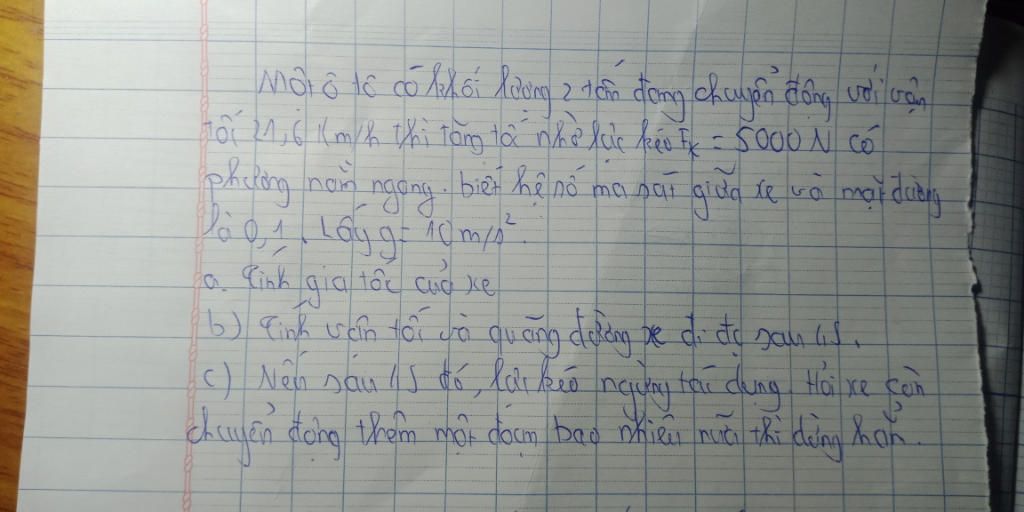 Một ô tô có khối lượng 2 tấn đang chuyển động với vận
tốc 21,6 km/h thì tăng tốc nhờ lực kéo Fk = 5000 N có
phương nằm ngang. biết hệ số ma sát giữa xe và mặt đường
là 0,1. Lấy g = 10 m/s².
a. Tính gia tốc của xe
b) Tính vận tốc và quãng đường xe đi đc sau 4s.
c) Nếu sau 4s đó, lực kéo ngừng tác dụng. Hỏi xe còn
chuyển động thêm một đoạn bao nhiêu nữa thì dừng hẳn.